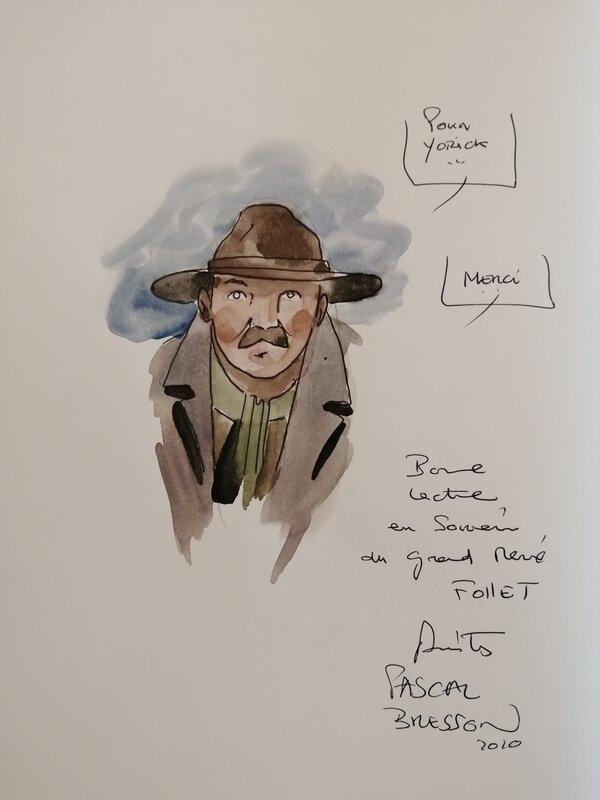 Pour
Yorick
MERCI
Bonne
lecture
en Souvenir
du grand René
FOLLET
Amitiés
PASCAL
BRESSON
2020